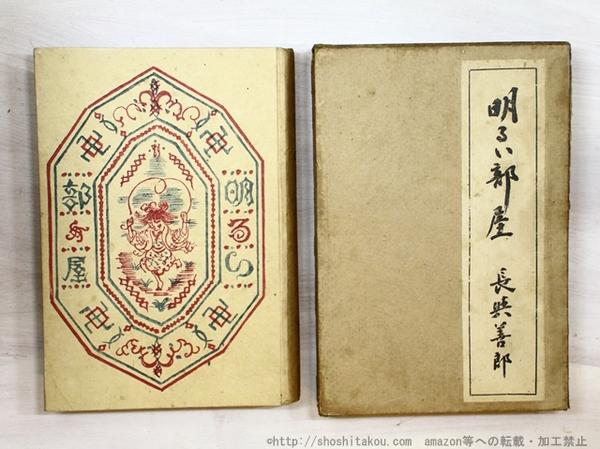 明るい
部屋
明るい部屋 長與善郎
©http://shoshitakou.com amazon等への転載・加工禁止